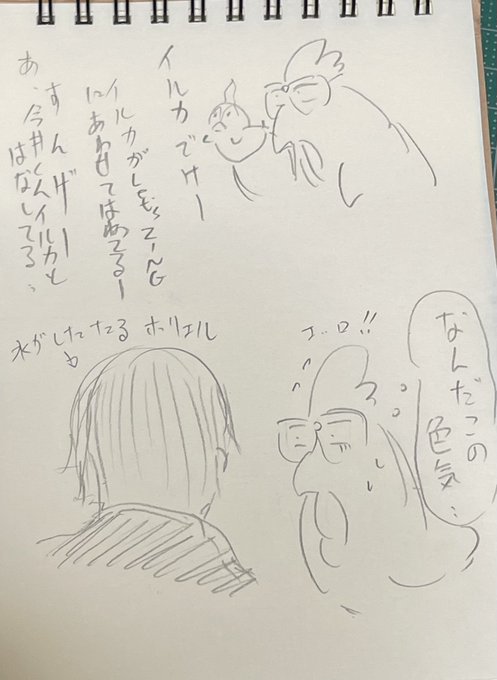 イルカでけー
イルカがしもてーんG
にあわせてはねてるー
すんげー
あ、今井くんイルカと
はなしてる…
水がしたたるホリエル
エーロ!!
なんだこの
色気…